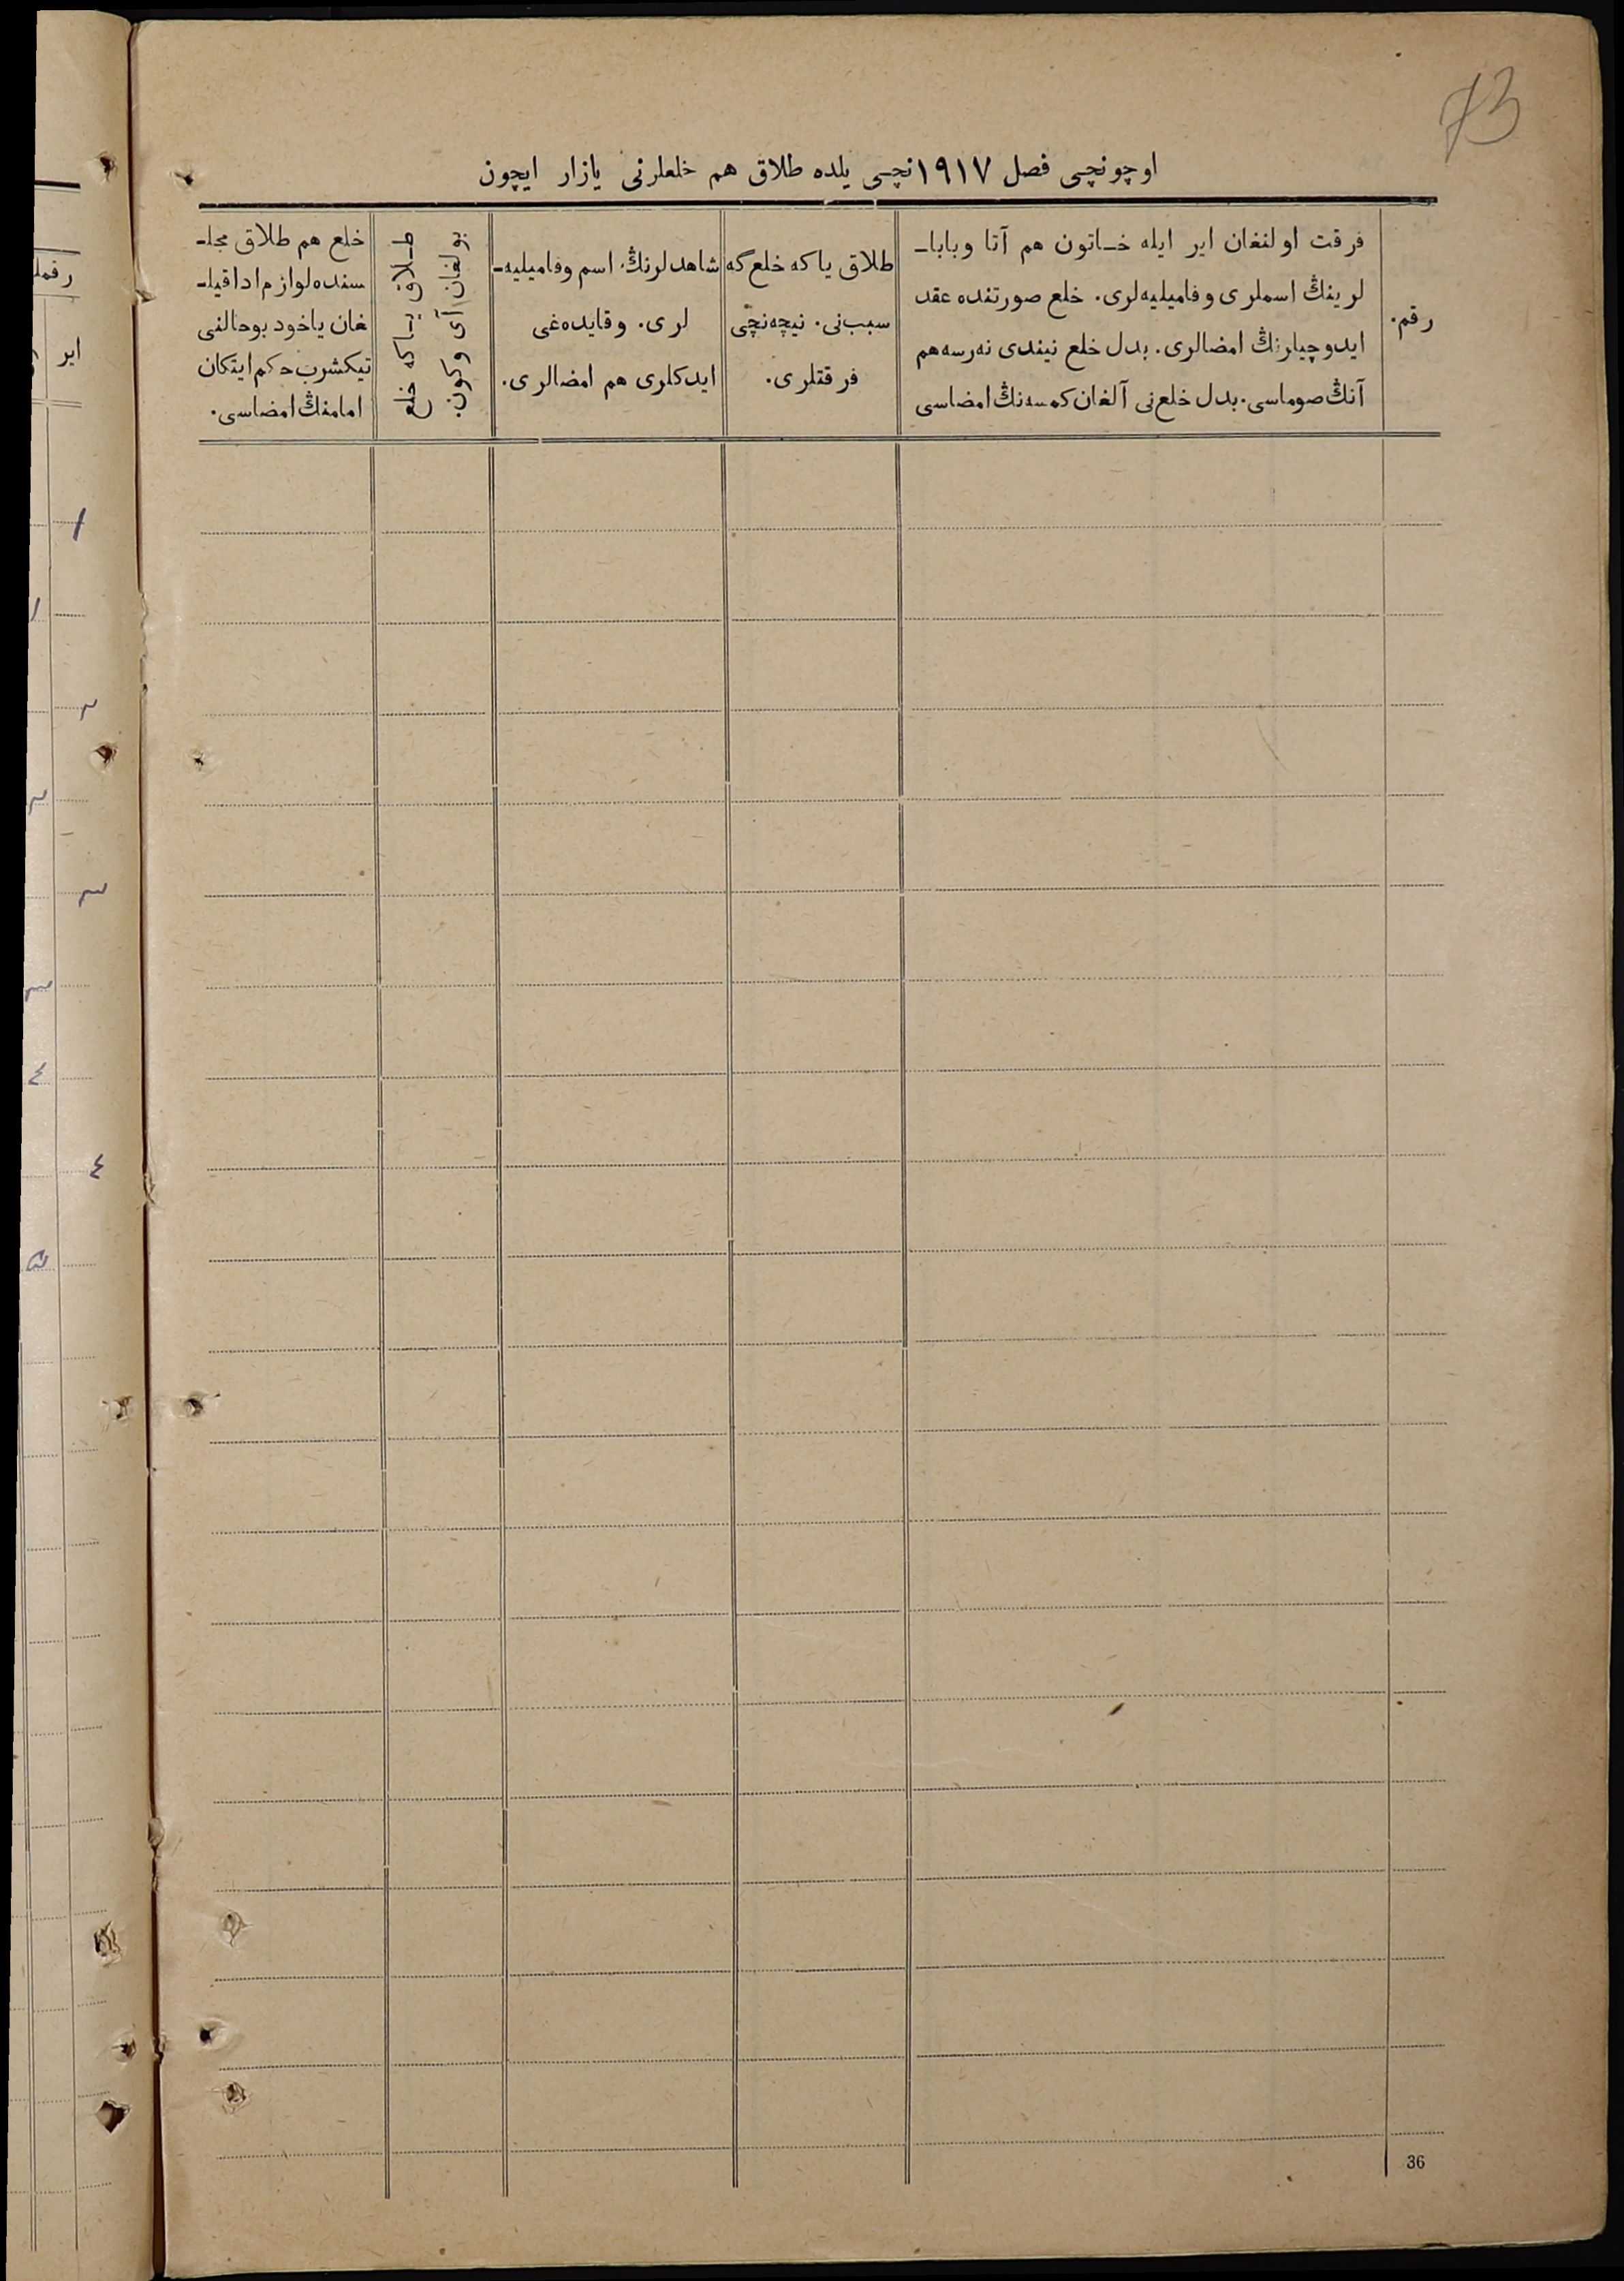 73
اوچونچی فصل ١٩١٧نچی یلده طلاق هم خلعلرنی یازار ایچون
رقم.
فرقت اولنغان ایر ایله خـاتون هم آتا وبابا۔
لرینڭ اسملری وفامیلیه‌لری. خلع صورتنده عقد
ایدوچیلرنڭ امضالری. بدل خلع نیندی نه‌رسه هم
آنڭ صوماسی. بدل خلع‌نی آلغان کمسه‌نڭ امضاسی
طلاق یا که خلع گه
سبب‌نی. نیچه‌نچی
فرقتلری.
شاهدلرنڭ اسم وفامیلیه۔
لری. وقایده‌غی
ایدکلری هم امضالری.
طـلاق یـاکه خلع
بولغان آی وکون.
خلع هم طلاق مجلـ
سنده لوازم ادا قیلـ
غان یاخود بوحالنی
تیکشرب حکم ایتکان
امامنڭ امضاسی.
36
رقملـ
ایر
١
١
٢
٢
٣
٣
٤
٤
٥